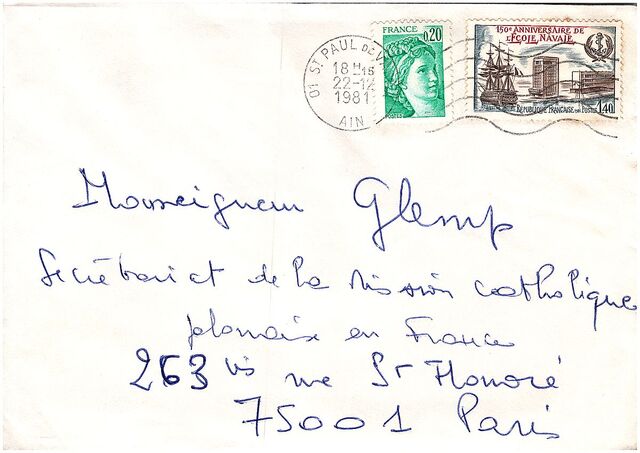 FRANCE
0,20
150e ANNIVERSAIRE DE
L'ÉCOLE NAVALE
RÉPUBLIQUE FRANÇAISE
POSTES
1,40
01 ST PAUL DE V
18H15
22-12
1981
AIN
Monseigneur Glemp
Secrétariat de la Mission catholique
polonaise en France
263 bis rue St Honoré
75001 Paris